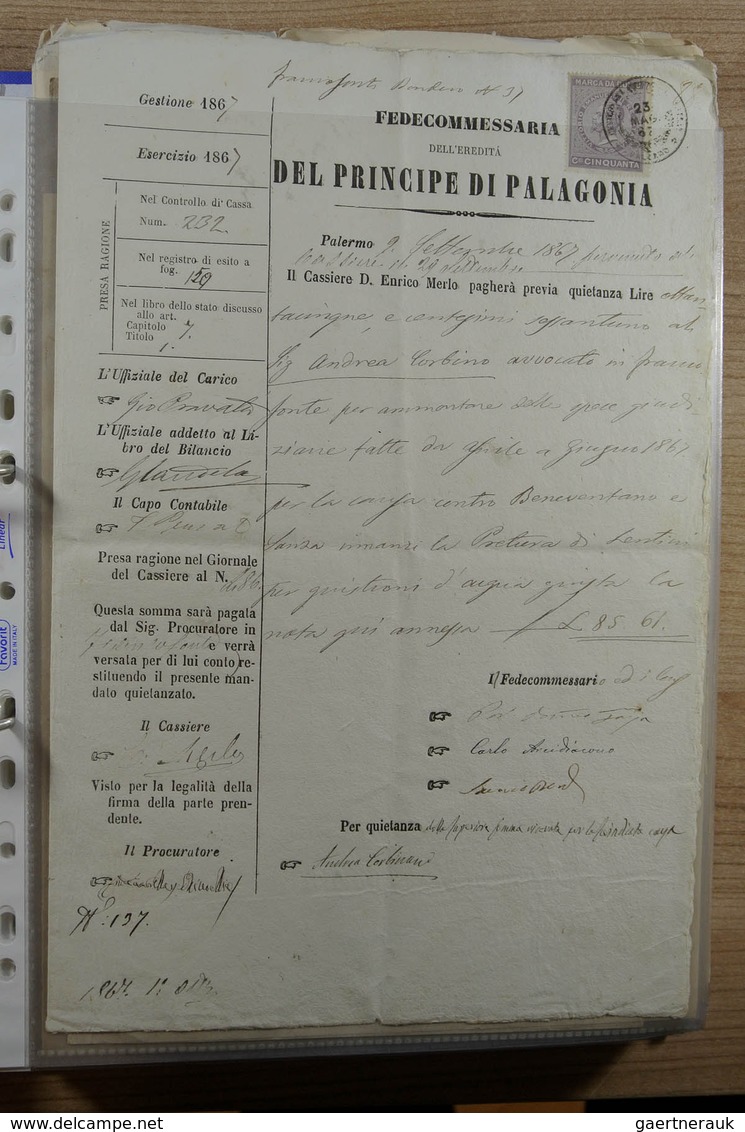 Gestione 1867
Esercizio 1867
PRESA RAGIONE
Nel Controllo di Cassa
Num. 232
Nel registro di esito a
fog. 159
Nel libro dello stato discusso
allo art.
Capitolo 7.
Titolo 1.
L'Uffiziale del Carico
L'Uffiziale addetto al Li-
bro del Bilancio
Il Capo Contabile
Presa ragione nel Giornale
del Cassiere al N.
Questa somma sarà pagata
dal Sig. Procuratore in
e verrà
versata per di lui conto re-
stituendo il presente man-
dato quietanzato.
Il Cassiere
Merlo
Visto per la legalità della
firma della parte pren-
dente.
Il Procuratore
N.º 137.
1867
N 37
MARCA DA
Cmi CINQUANTA
23
MAG
67
FEDECOMMESSARIA
DELL'EREDITÀ
DEL PRINCIPE DI PALAGONIA
Palermo 9 Settembre 1867 pervenuto al
Cassiere li 29 Settembre
Il Cassiere D. Enrico Merlo pagherà previa quietanza Lire ottan-
tacinque, e centesimi sessantuno al
Sig Andrea Corbino avvocato in Franco
fonte per ammontare delle spese giudi
ziarie fatte da Aprile a Giugno 1867
per la causa contro Beneventano e
Sanza innanzi la Pretura di Lentini
per quistioni d'acqua giusta la
nota qui annessa L. 85 61.
I Fedecommessari
Carlo Arcidiacono
Per quietanza della superiore somma ricevuta per la causa
Andrea Corbino
gaertnerauk